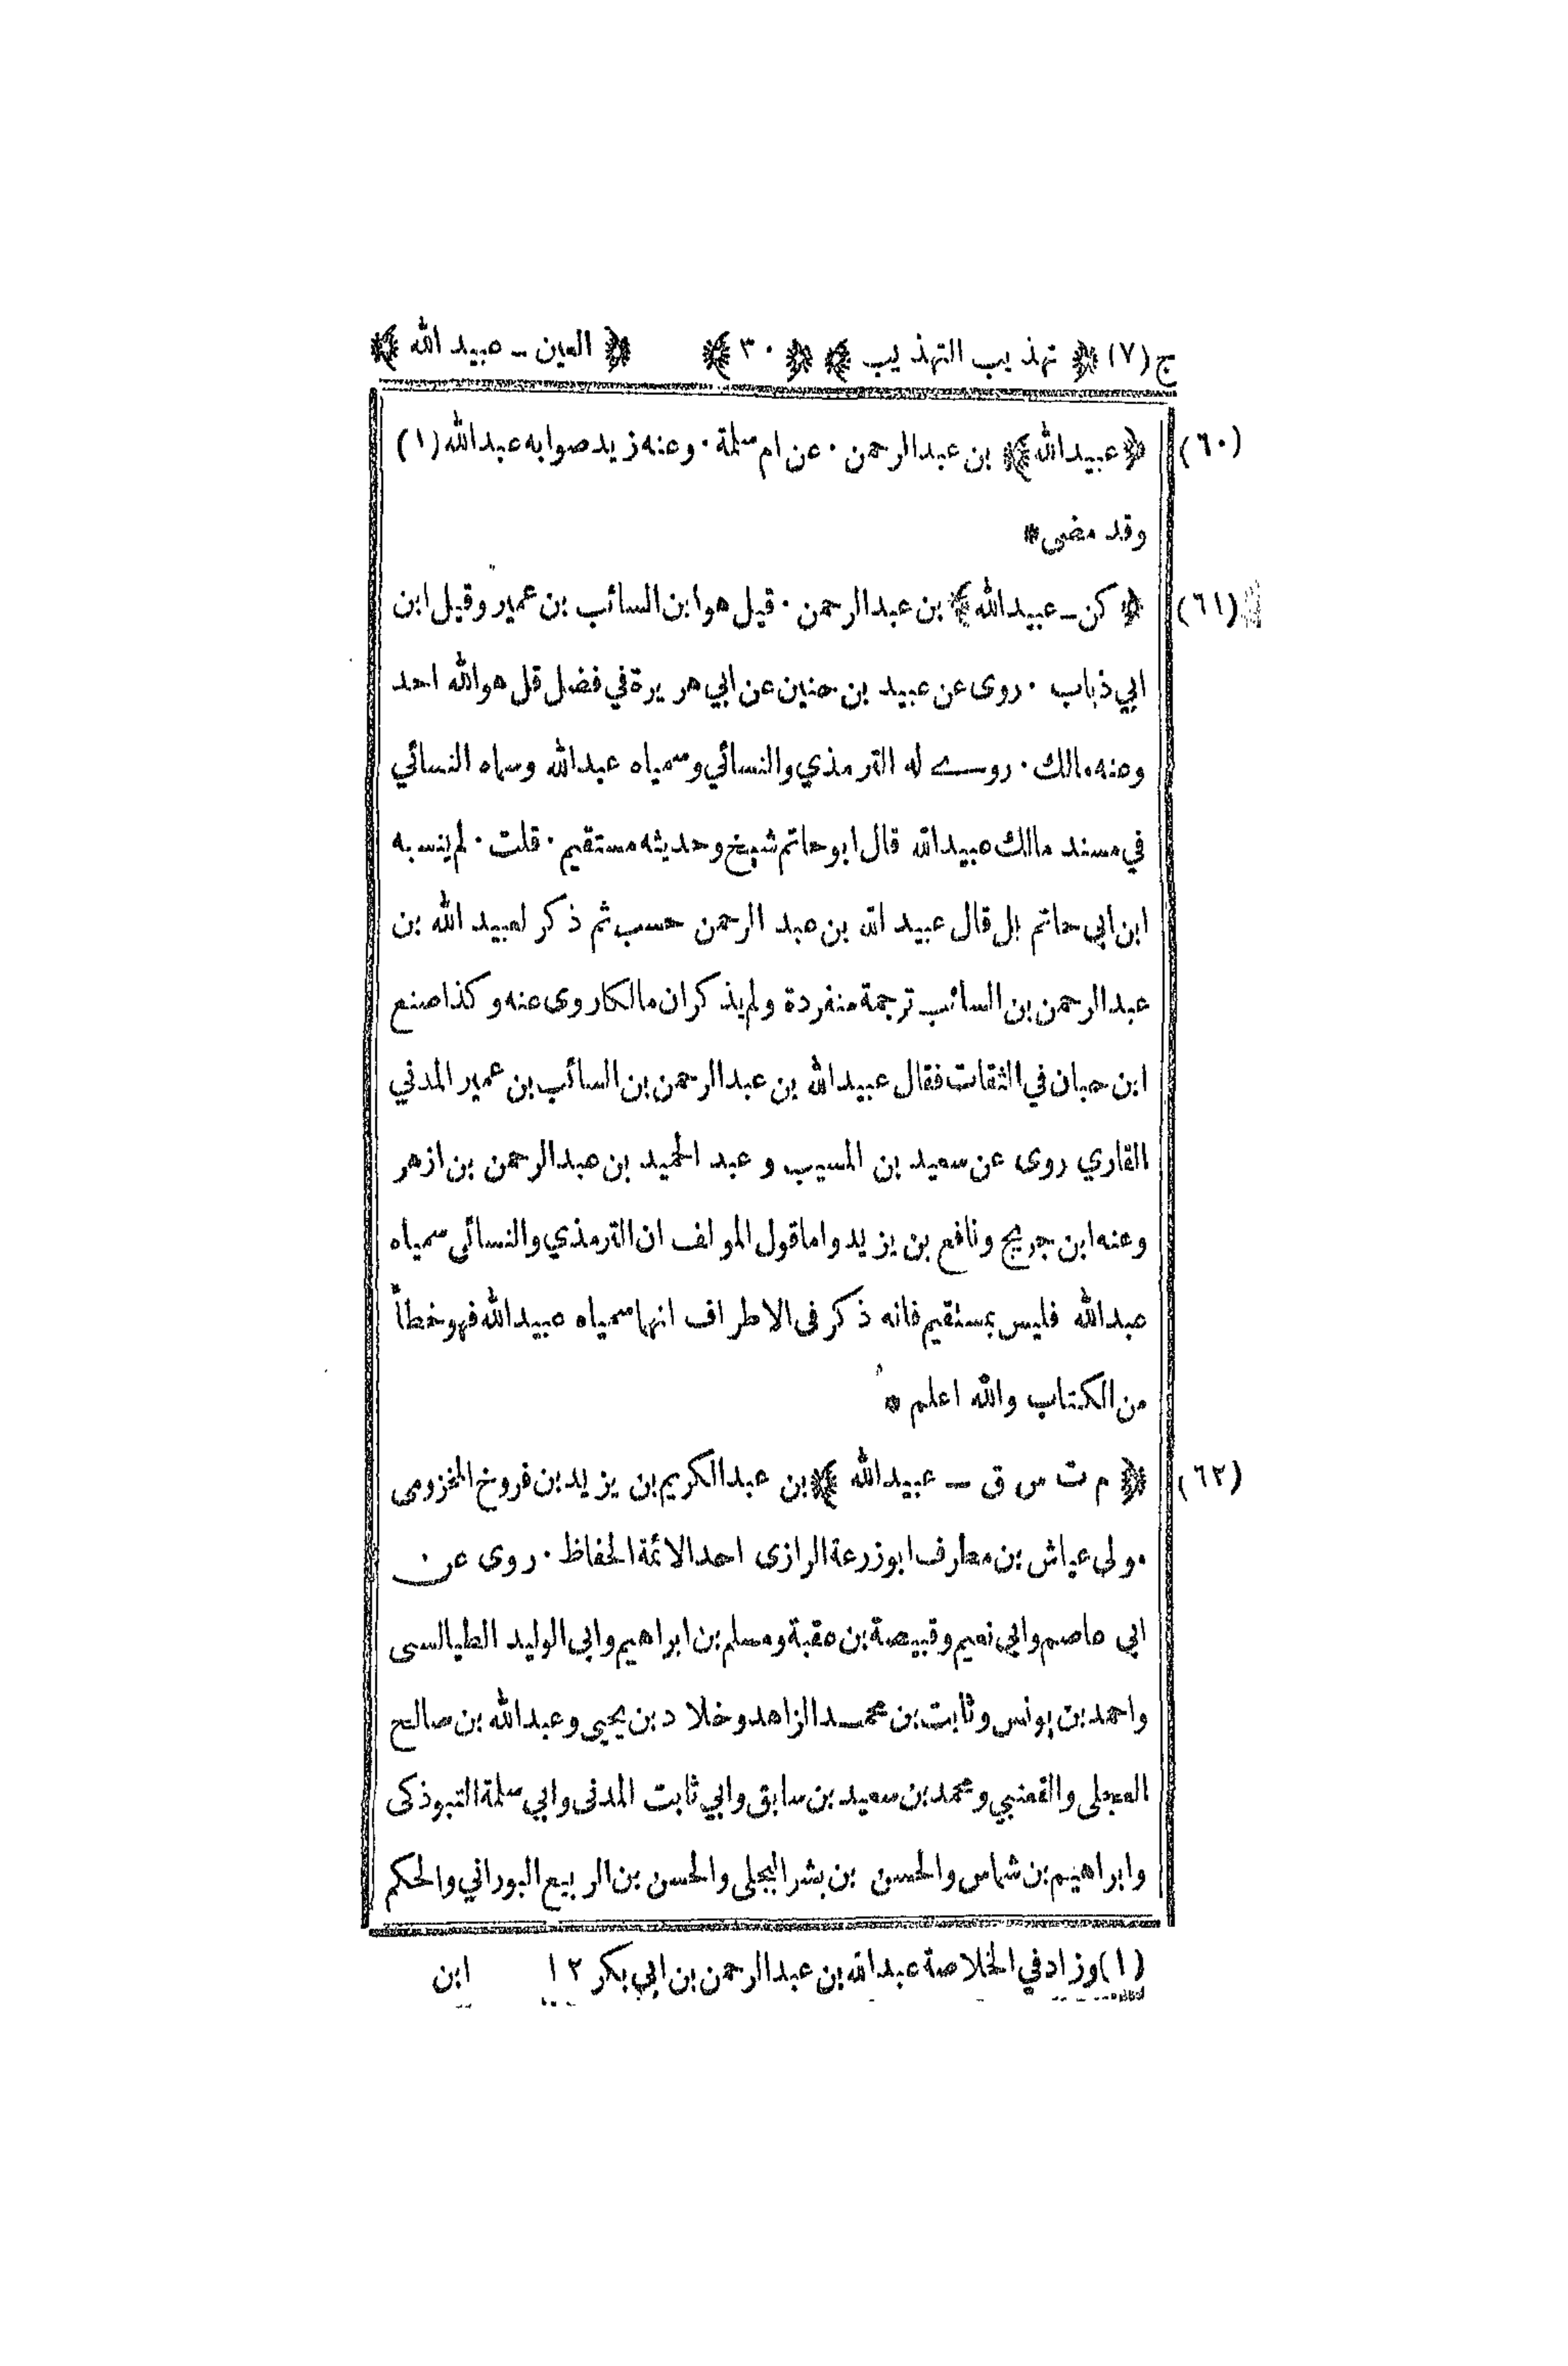 ج (٧) ﴿ تهذيب التهذيب ﴾ ﴿ ٣٠ ﴾ ﴿ العين - عبيد الله ﴾
(٦٠) ﴿ عبيدالله ﴾ بن عبدالرحمن . عن ام سلمة . وعنه زيد صوابه عبدالله (١)
وقد مضى *
(٦١) ﴿ كن - عبيدالله ﴾ بن عبدالرحمن . قيل هو ابن السائب بن عمير وقيل ابن
ابي ذباب . روى عن عبيد بن حنين عن ابي هريرة في فضل قل هو الله احد
وعنه مالك . روى له الترمذي والنسائي وسمياه عبدالله وسماه النسائي
في مسند مالك عبيدالله قال ابو حاتم شيخ وحديثه مستقيم . قلت . لم ينسبه
ابن ابى حاتم بل قال عبيد الله بن عبد الرحمن حسب ثم ذكر لعبيد الله بن
عبدالرحمن بن السائب ترجمة منفردة ولم يذكر ان مالكا روى عنه وكذا صنع
ابن حبان في الثقات فقال عبيدالله بن عبدالرحمن بن السائب بن عمير المدني
القاري روى عن سعيد بن المسيب و عبد الحميد بن عبدالرحمن بن ازهر
وعنه ابن جريج ونافع بن يزيد واما قول المولف ان الترمذي والنسائى سمياه
عبدالله فليس بمستقيم فانه ذكر فى الاطراف انهما سمياه عبيدالله فهو خطأ
من الكتاب والله اعلم *
(٦٢) ﴿ م ت س ق - عبيدالله ﴾ بن عبدالكريم بن يزيد بن فروخ المخزومى
مولى عياش بن مطرف ابو زرعة الرازى احد الائمة الحفاظ . روى عن
ابي عاصم وابي نعيم وقبيصة بن عقبة ومسلم بن ابراهيم وابى الوليد الطيالسى
واحمد بن يونس وثابت بن محمد الزاهد وخلاد بن يحيى وعبدالله بن صالح
العجلى والقعنبي ومحمد بن سعيد بن سابق وابي ثابت المدنى وابي سلمة التبوذكى
وابراهيم بن شماس والحسن بن بشر البجلى والحسن بن الربيع البوراني والحكم
(١) وزاد في الخلاصة عبدالله بن عبدالرحمن بن ابي بكر ١٢ ابن